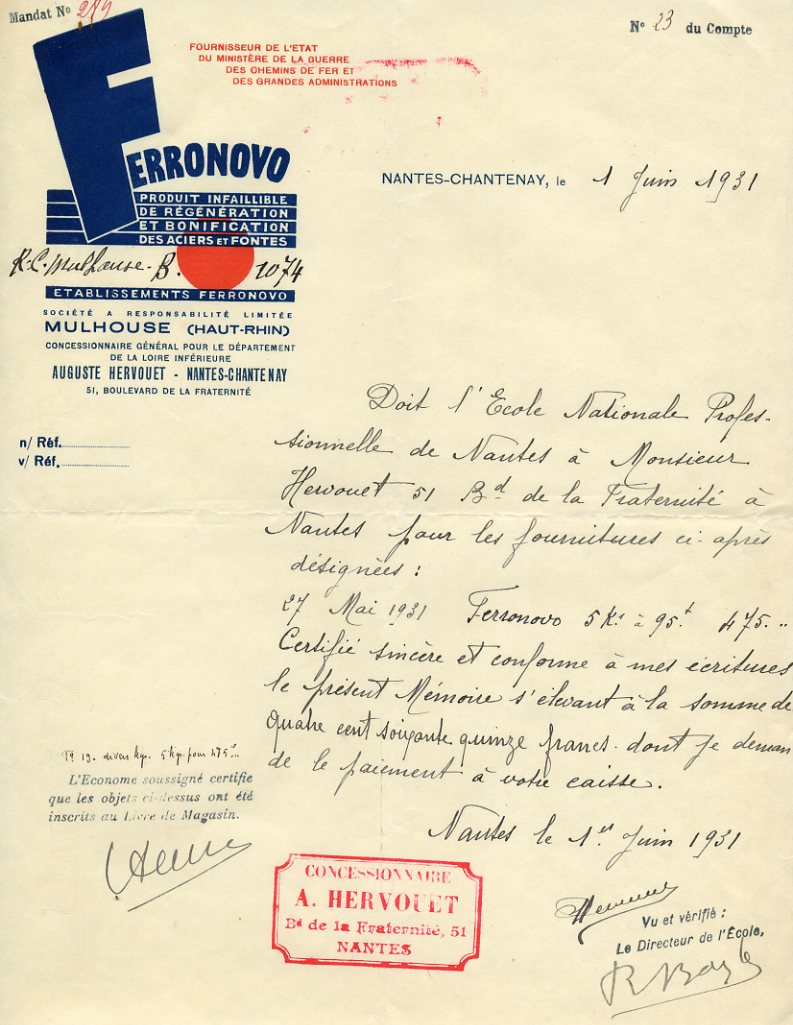 Mandat Nº 289
Nº 23 du Compte
FOURNISSEUR DE L'ETAT
DU MINISTÈRE DE LA GUERRE
DES CHEMINS DE FER ET
DES GRANDES ADMINISTRATIONS
FERRONOVO
PRODUIT INFAILLIBLE
DE RÉGÉNÉRATION
ET BONIFICATION
DES ACIERS ET FONTES
R.C. Mulhouse. B. 1074
ETABLISSEMENTS FERRONOVO
SOCIÉTÉ A RESPONSABILITÉ LIMITÉE
MULHOUSE (HAUT-RHIN)
CONCESSIONNAIRE GÉNÉRAL POUR LE DÉPARTEMENT
DE LA LOIRE INFÉRIEURE
AUGUSTE HERVOUET - NANTES-CHANTENAY
51, BOULEVARD DE LA FRATERNITÉ
NANTES-CHANTENAY, le 1 Juin 1931
n/ Réf.
v/ Réf.
Doit l'Ecole Nationale Profes-
sionnelle de Nantes à Monsieur
Hervouet 51 Bd de la Fraternité à
Nantes pour les fournitures ci-après
désignées :
27 Mai 1931 Ferronovo 5 Ks à 95f 475. "
Certifié sincère et conforme à mes écritures
le présent Mémoire s'élevant à la somme de
quatre cent soixante quinze francs. dont je deman
de le paiement à votre caisse.
Nantes le 1er Juin 1931
19. divers kg. 5 kg. pour 475f..
L'Econome soussigné certifie
que les objets ci-dessus ont été
inscrits au Livre de Magasin.
CONCESSIONNAIRE
A. HERVOUET
Bd de la Fraternité, 51
NANTES
Vu et vérifié :
Le Directeur de l'École,